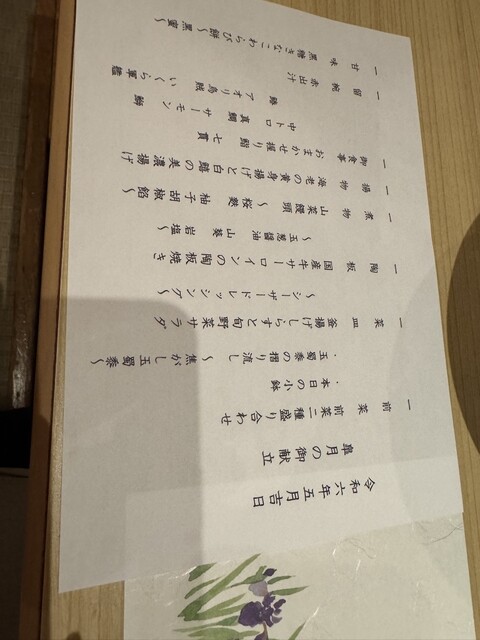 令和六年五月吉日
皐月の御献立
一 前菜 前菜二種盛り合わせ
・本日の小鉢
・玉蜀黍の摺り流し ～焦がし玉蜀黍～
一 菜皿 釜揚げしらすと旬野菜サラダ
～シーザードレッシング～
一 陶板 国産牛サーロインの陶板焼き
～玉葱醤油 山葵 岩塩～
一 煮物 山菜饅頭 ～桜麩 柚子胡椒餡～
一 揚物 海老の黄身揚げと白鱚の美濃揚げ
一 御食事 おまかせ握り鮨 七貫
中トロ 真鯛 サーモン 鰤
アオリ烏賊 いくら軍艦
一 留椀 赤出汁
一 甘味 黒糖きなこわらび餅 ～黒蜜～